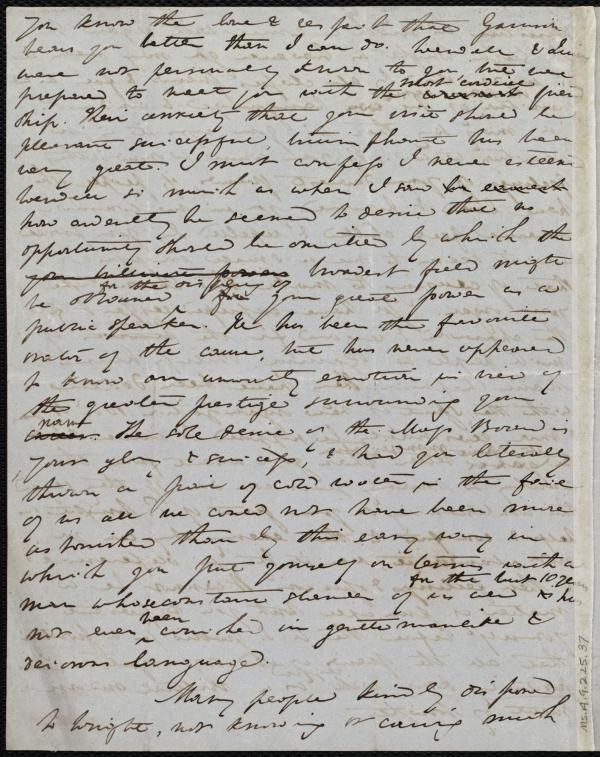 You know the love & respect that Garrison
bears you better than I can do. Wendell &
were not personally known to you but were
prepared to meet you with the most cordial friend
ship. Their anxiety that your visit should be
pleasant successful, triumphant has been
very great. I must confess I never esteem
Wendell so much as when I saw
how ardently he seemed to desire that no
opportunity should be omitted by which the
broadest field might
be obtained for the display of your great power as a
public speaker. He has been the favourite
orator of the cause, but has never appeared
to know an unworthy emotion in view of
the greater prestige surrounding your
name. The sole desire of the Mass Board is
your glory & success, & had you literally
thrown a pail of cold water in the face
of us all we could not have been more
astonished than by this easy way in
which you put yourself on terms with a
man whose constant slander of us all for the last 10 years has
not even been couched in gentlemanlike &
decorous language.
Many people kindly disposed
to Wright, not knowing or caring much
Ms.A.9.2.25.37